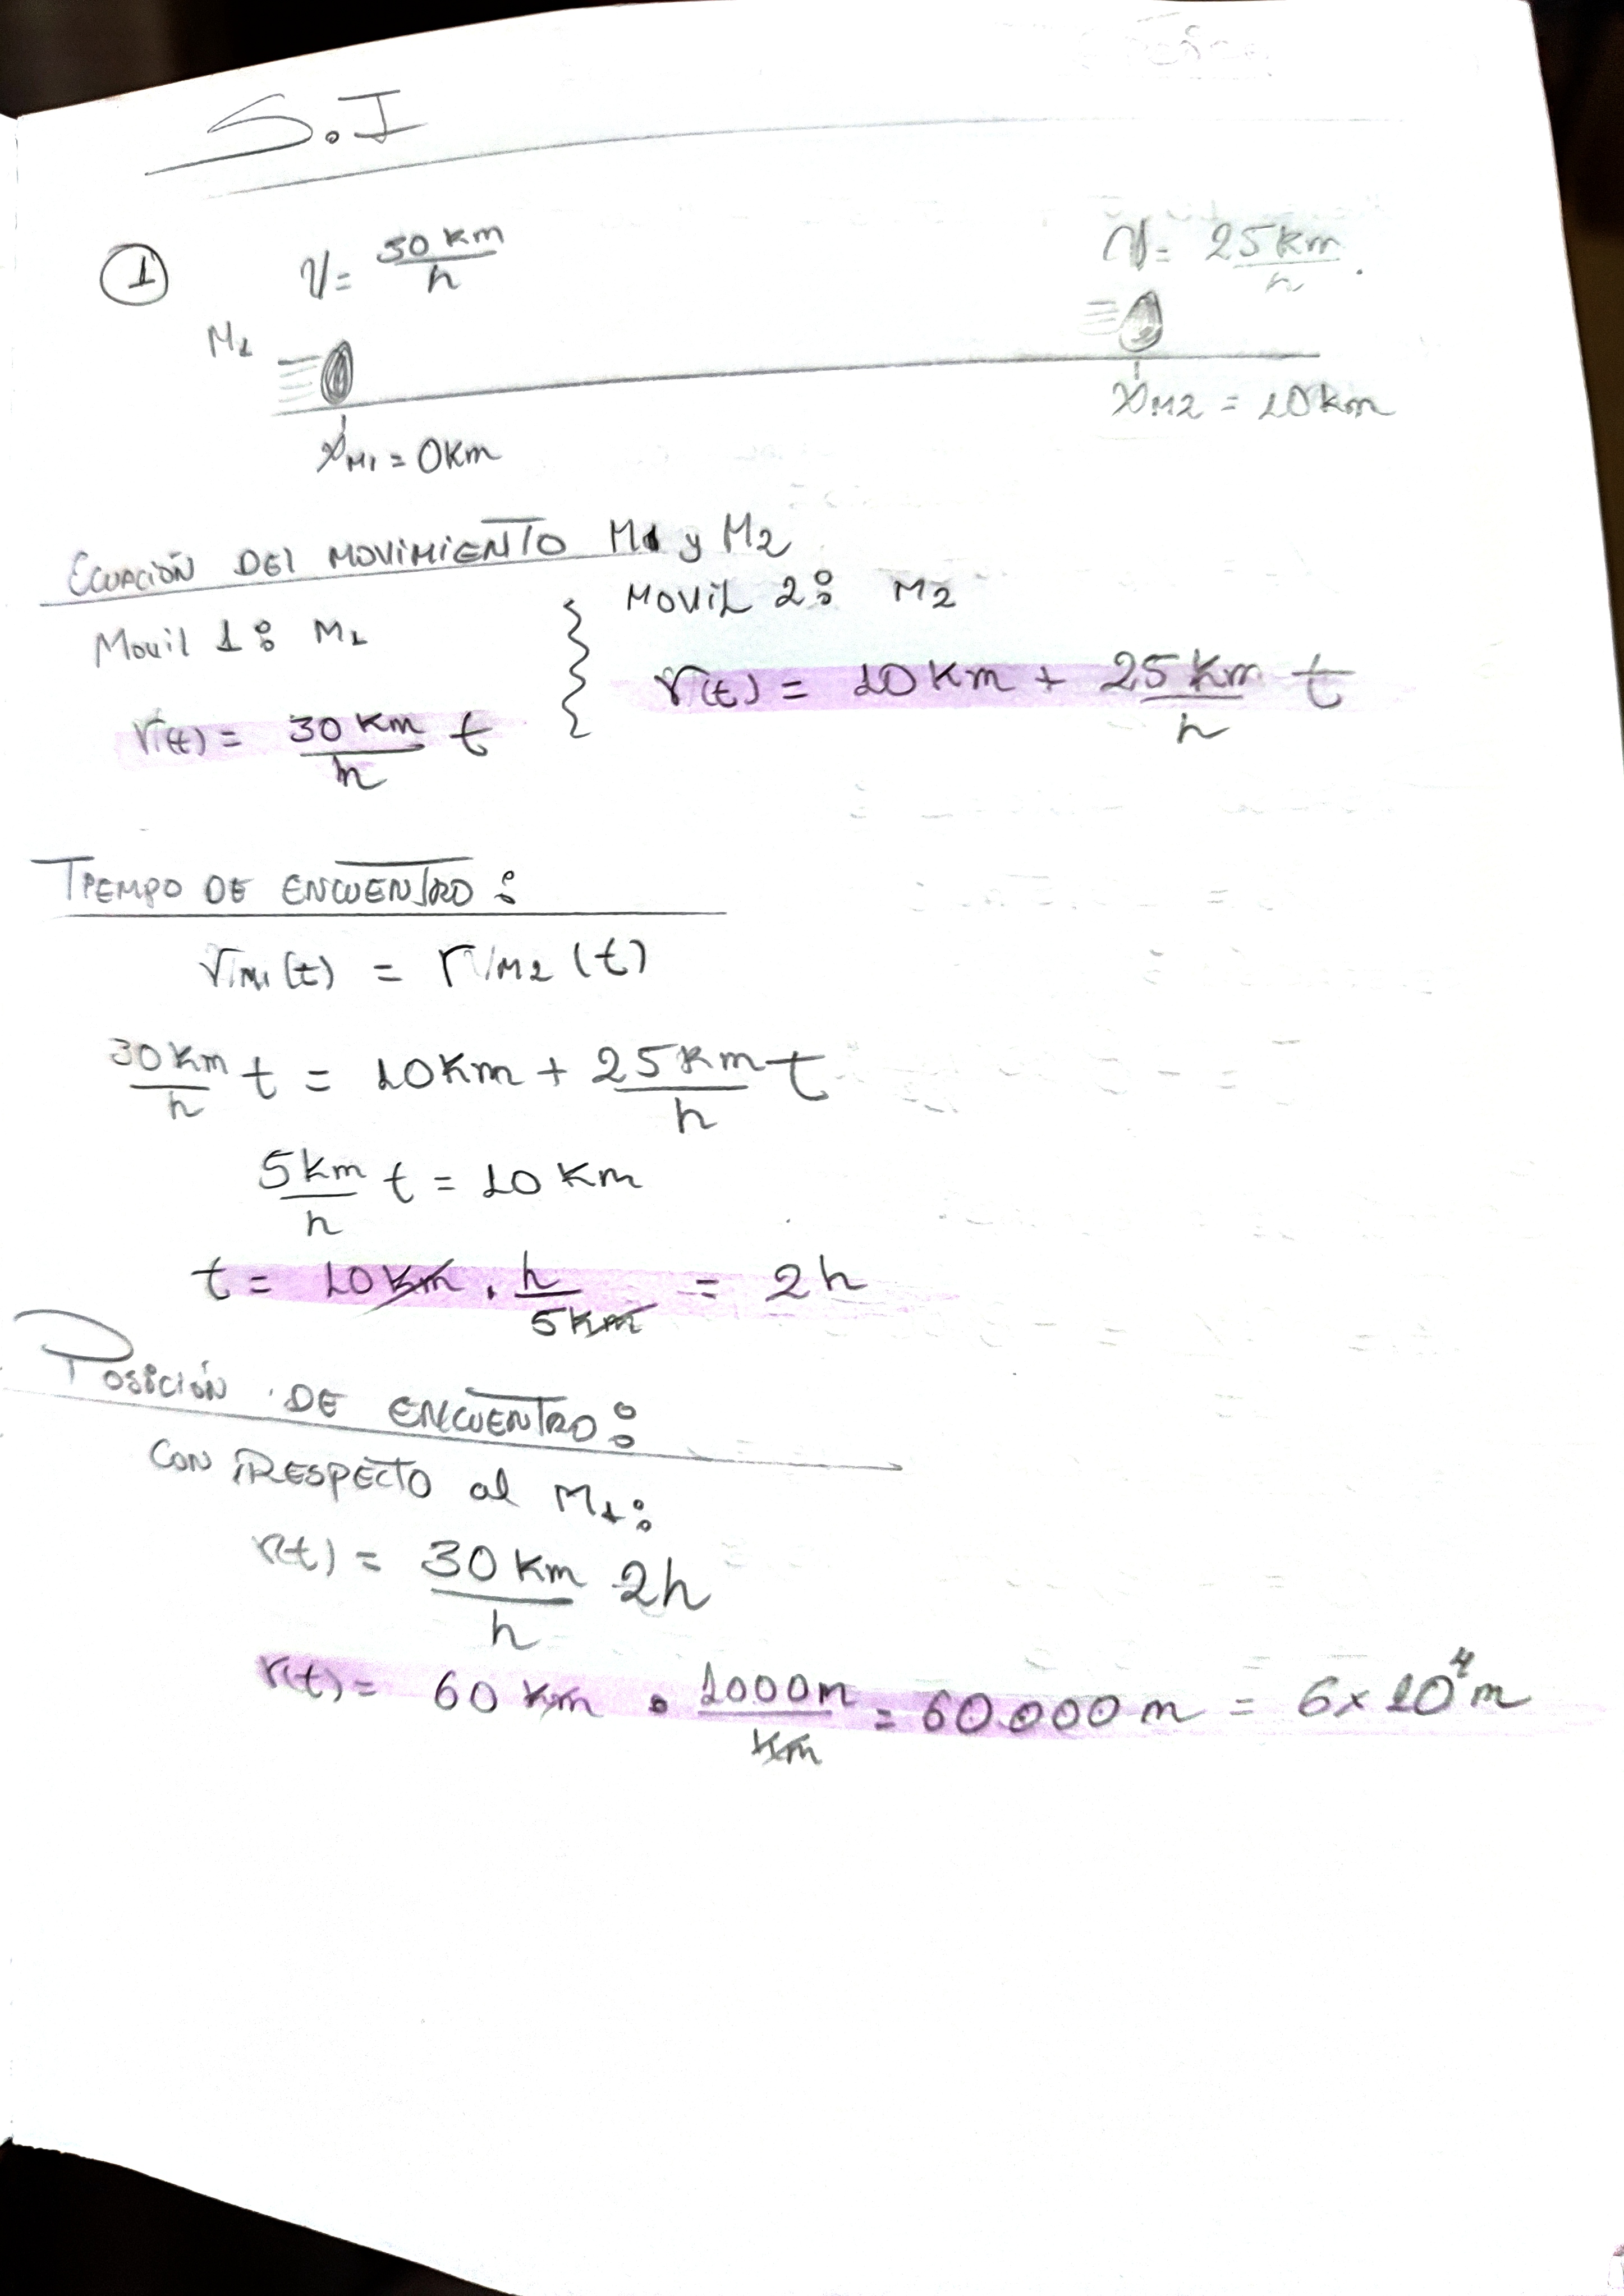 S.I
① V = 30 km/h
V = 25 km/h.
M1
XM1 = 0Km
XM2 = 10km
ECUACIÓN DEl MOVIMIENTO M1 y M2
Movil 1: M1
MOVIL 2: M2
r(t) = 30 Km/h t
r(t) = 10 Km + 25 Km/h t
TIEMPO DE ENCUENTRO:
rM1(t) = rM2(t)
30 Km/h t = 10Km + 25 Km/h t
5 km/h t = 10 Km
t = 10 km . h/5 km = 2h
POSICIÓN DE ENCUENTRO:
CON RESPECTO al M1:
r(t) = 30 Km/h 2h
r(t) = 60 km . 1000m/km = 60.000 m = 6 x 10⁴ m